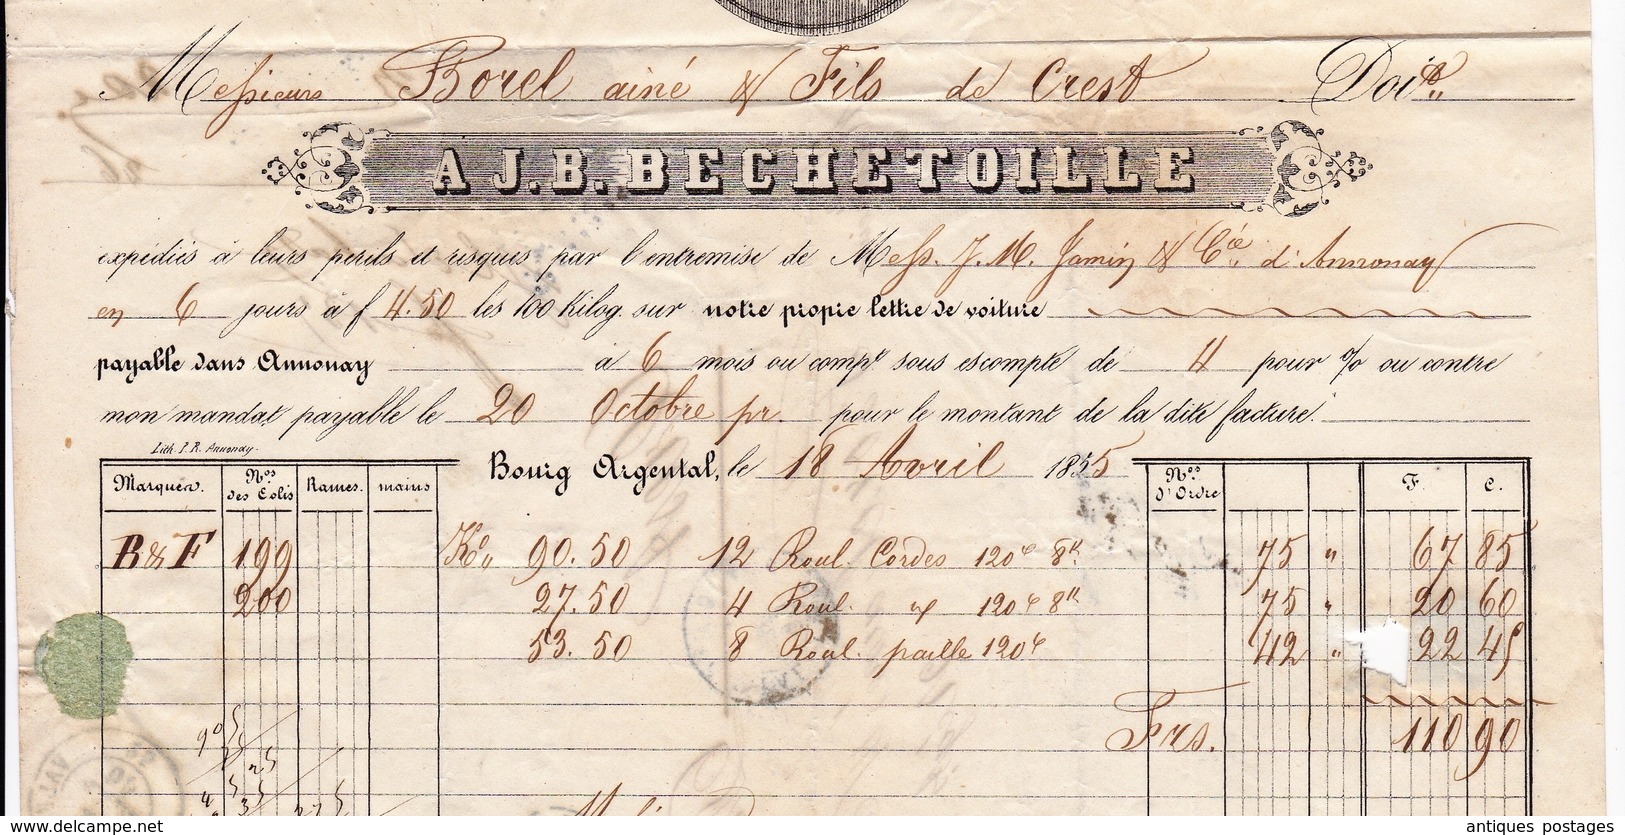 Messieurs Borel ainé & Fils de Crest Doivt
A J.B. BECHETOILLE
expédiés à leurs perils et risques par l'entremise de Mess. J. M. Jamin & Cie d'Annonay
en 6 jours à f 4.50 les 100 Kilog. sur notre propre lettre de voiture
payable dans Annonay à 6 mois ou compt sous escompte de 4 pour % ou contre
mon mandat payable le 20 Octobre pr. pour le montant de la dite facture.
Lith. P. R. Annonay.
Bourg Argental, le 18 Avril 1855
Marques. Nos des Colis Rames. mains Nos d'Ordre F. C.
B & F 199 Ko 90.50 12 Roul. Cordes 120c 8k 75 " 67 85
200 27.50 4 Roul. 120c 8k 75 " 20 60
53.50 8 Roul. paille 120c 42 " 22 45
Frs. 110 90
antiques postages
delcampe.net